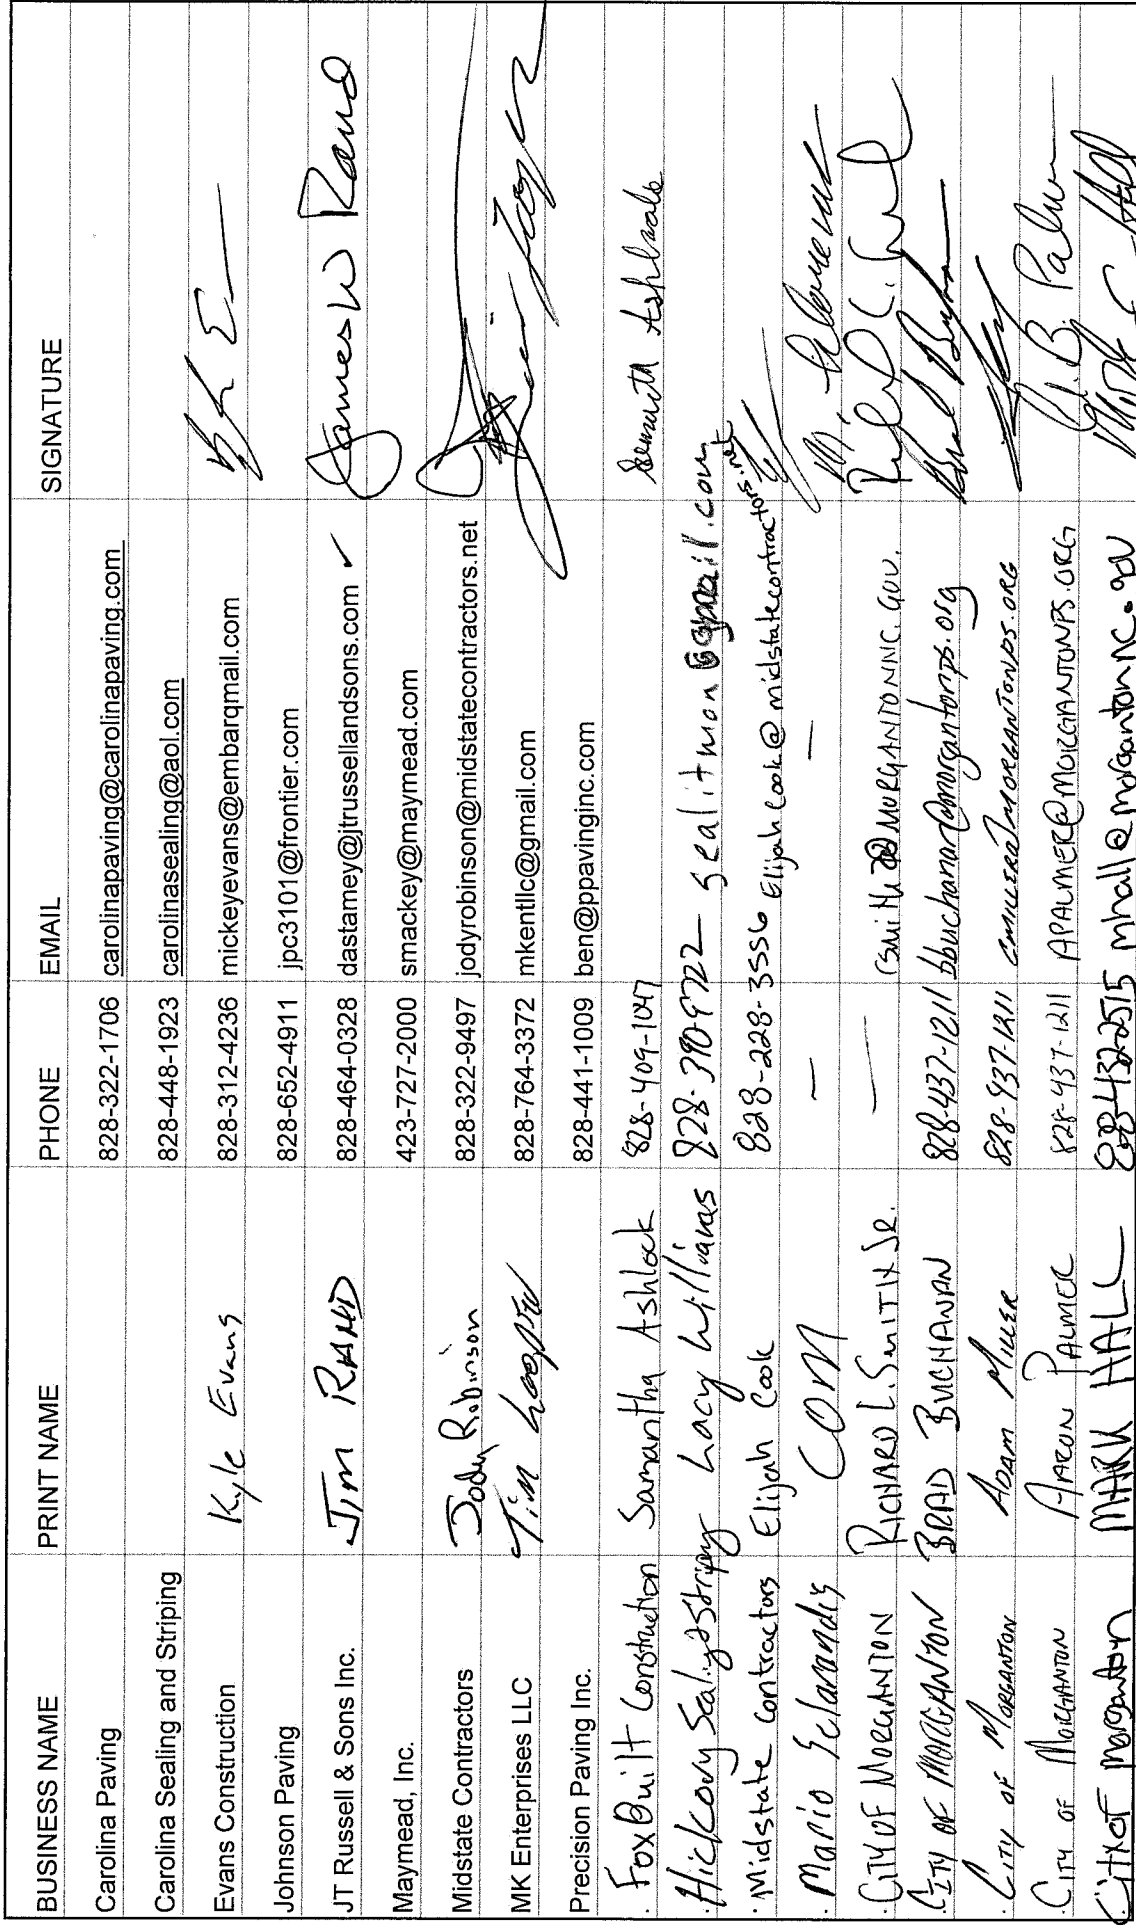 BUSINESS NAME PRINT NAME PHONE EMAIL SIGNATURE
Carolina Paving 828-322-1706 carolinapaving@carolinapaving.com
Carolina Sealing and Striping 828-448-1923 carolinasealing@aol.com
Evans Construction Kyle Evans 828-312-4236 mickeyevans@embarqmail.com
Johnson Paving 828-652-4911 jpc3101@frontier.com
JT Russell & Sons Inc. Jim RAND 828-464-0328 dastamey@jtrussellandsons.com ✓ James W Rand
Maymead, Inc. 423-727-2000 smackey@maymead.com
Midstate Contractors Jody Robinson 828-322-9497 jodyrobinson@midstatecontractors.net
MK Enterprises LLC Tim Hooper 828-764-3372 mkentllc@gmail.com
Precision Paving Inc. 828-441-1009 ben@ppavinginc.com
· FoxBuilt Construction Samantha Ashlock 828-409-1047 Ashlock
· Hickory Sealing & Striping Lacy Williams sealitmon@gmail.com
· Midstate Contractors Elijah Cook 828-228-3556 Elijahcook@midstatecontractors.net
· Mario COM — —
· CITY OF MORGANTON RICHARD L. SMITH JR. — rsmith@MORGANTONNC.GOV.
· CITY OF MORGANTON BRAD BUCHANAN 828-437-1211 bbuchanan@morgantonps.org
· CITY OF MORGANTON ADAM MILLER 828-437-1211 @MORGANTONPS.ORG
· CITY OF MORGANTON AARON PALMER 828-437-1211 APALMER@MORGANTONPS.ORG B. Palmer
City of Morganton MARK HALL 828-432-2515 mhall@morgantonnc.gov